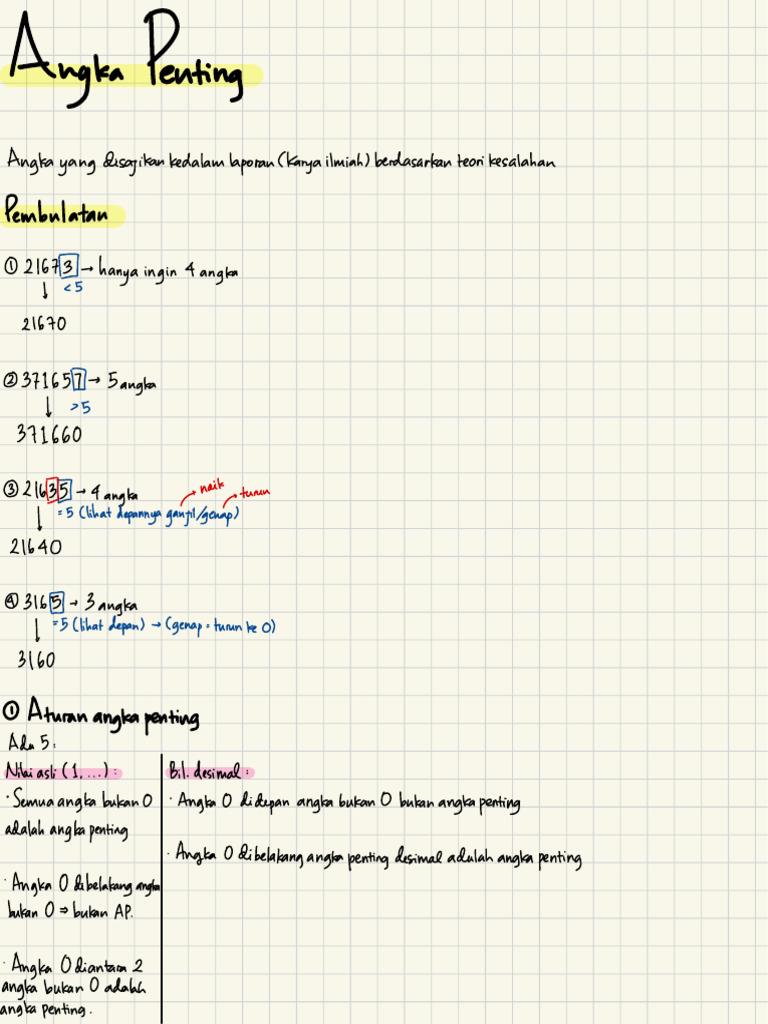 Angka Penting
Angka yang disajikan kedalam laporan (Karya ilmiah) berdasarkan teori kesalahan
Pembulatan
① 21673 → hanya ingin 4 angka
↓ < 5
21670
② 371657 → 5 angka
↓ > 5
371660
③ 21635 → 4 angka
naik
turun
↓ = 5 (lihat depannya ganjil/genap)
21640
④ 3165 → 3 angka
↓ = 5 (lihat depan) → (genap = turun ke 0)
3160
① Aturan angka penting
Ada 5 :
Nilai asli (1, ...) :
· Semua angka bukan 0
adalah angka penting
· Angka 0 dibelakang angka
bukan 0 ⇒ bukan AP.
· Angka 0 diantara 2
angka bukan 0 adalah
angka penting.
Bil. desimal :
· Angka 0 didepan angka bukan 0 bukan angka penting
· Angka 0 dibelakang angka penting desimal adalah angka penting